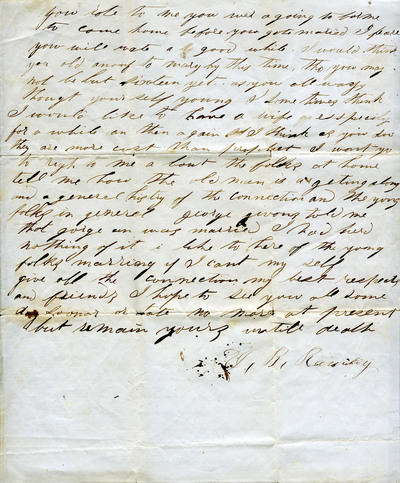 you rote to me you wer a going to
to come home before you gets maried I
you will wate a good while. I would think
you old anouf to mary by this time, tho you may
not be but sixteen yet. as you all ways
thought your self young I some times think
I would like to have a wife
for a while an then again I think as you do
they are more cost than profet I want you
to right to me a bout the folks at home
tell me how the old man is a geting along
and a general histy of the connection and the young
folks in general george told me
that was maried I had herd
nothing of it i like to here of the young
folks marrieng if I cant my self
give all the connection my best respects
and friends I hope to see you all some
day sooner or late no more at present
but remain yours untill death